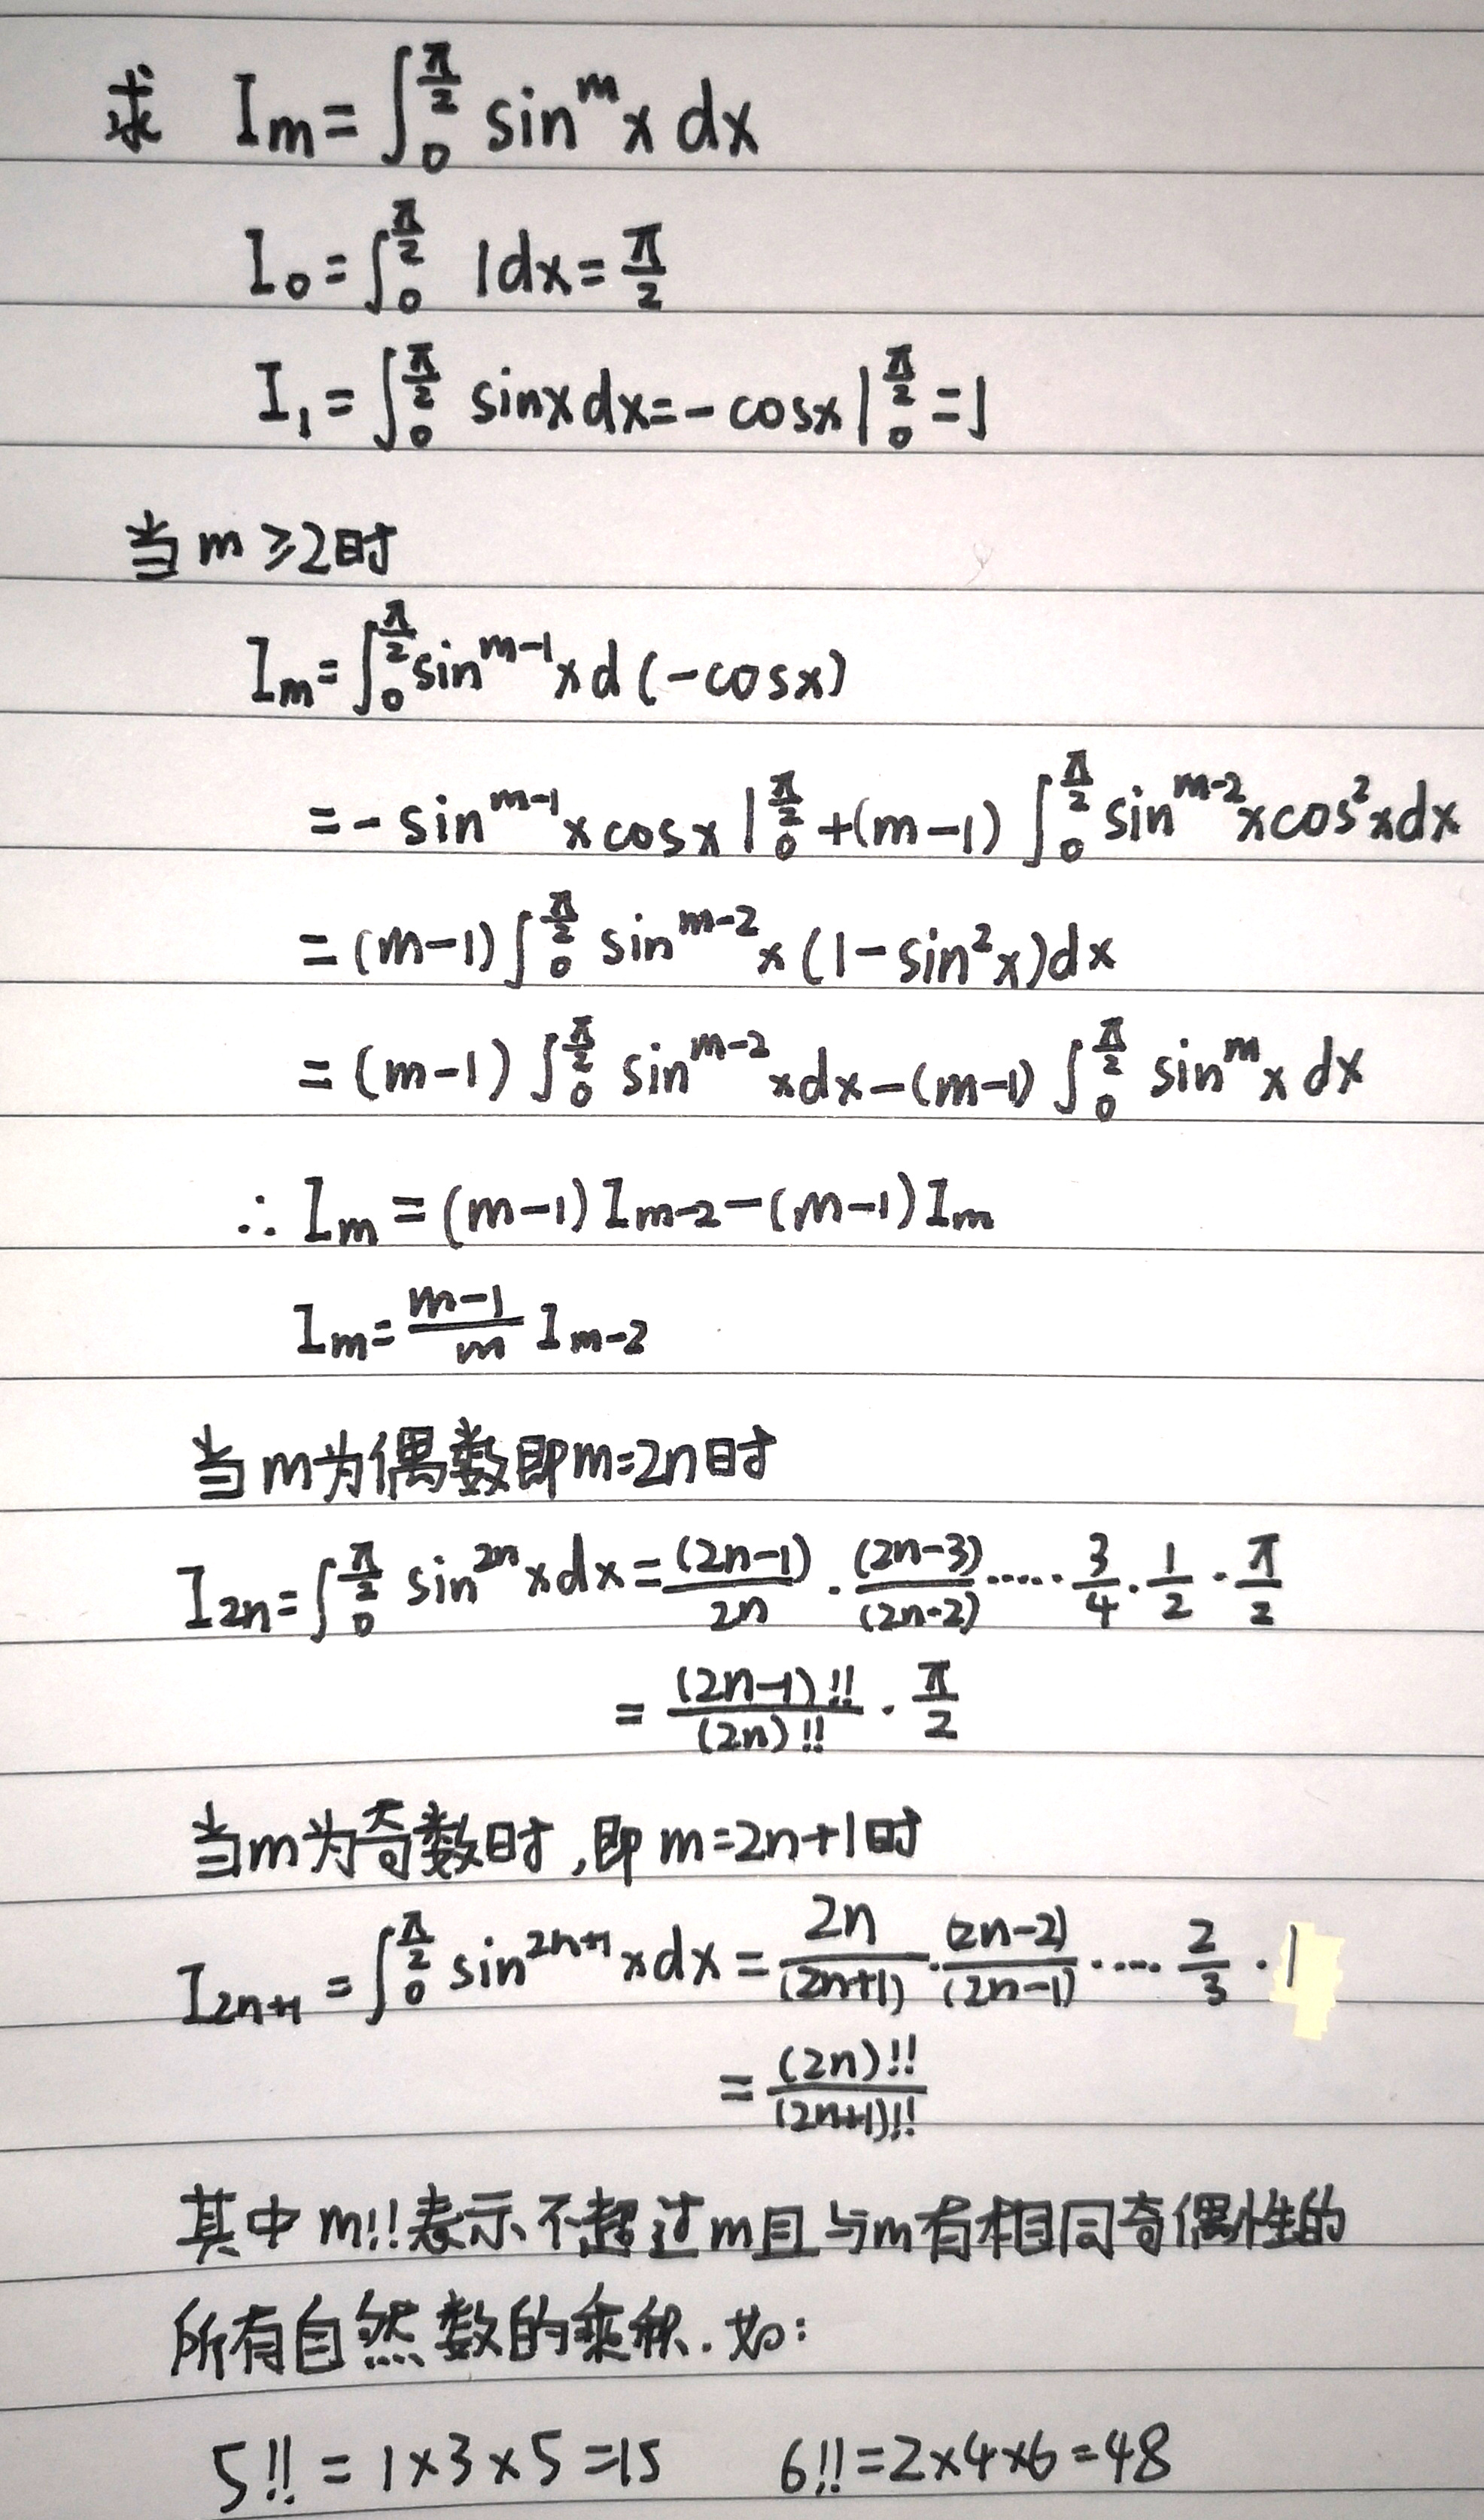 求 I_m = ∫_0^{π/2} sin^m x dx
I_0 = ∫_0^{π/2} 1dx = π/2
I_1 = ∫_0^{π/2} sinx dx = -cosx |_0^{π/2} = 1
当 m ≥ 2时
I_m = ∫_0^{π/2} sin^{m-1} x d(-cosx)
= -sin^{m-1} x cosx |_0^{π/2} + (m-1) ∫_0^{π/2} sin^{m-2} x cos^2 x dx
= (m-1) ∫_0^{π/2} sin^{m-2} x (1-sin^2 x) dx
= (m-1) ∫_0^{π/2} sin^{m-2} x dx - (m-1) ∫_0^{π/2} sin^m x dx
∴ I_m = (m-1) I_{m-2} - (m-1) I_m
I_m = (m-1)/m I_{m-2}
当m为偶数即m=2n时
I_{2n} = ∫_0^{π/2} sin^{2n} x dx = (2n-1)/2n · (2n-3)/(2n-2) ····· 3/4 · 1/2 · π/2
= (2n-1)!!/(2n)!! · π/2
当m为奇数时,即 m=2n+1时
I_{2n+1} = ∫_0^{π/2} sin^{2n+1} x dx = 2n/(2n+1) · (2n-2)/(2n-1) ····· 2/3 · 1
= (2n)!!/(2n+1)!!
其中 m!!表示不超过m且与m有相同奇偶性的
所有自然数的乘积. 如:
5!! = 1×3×5 = 15 6!! = 2×4×6 = 48